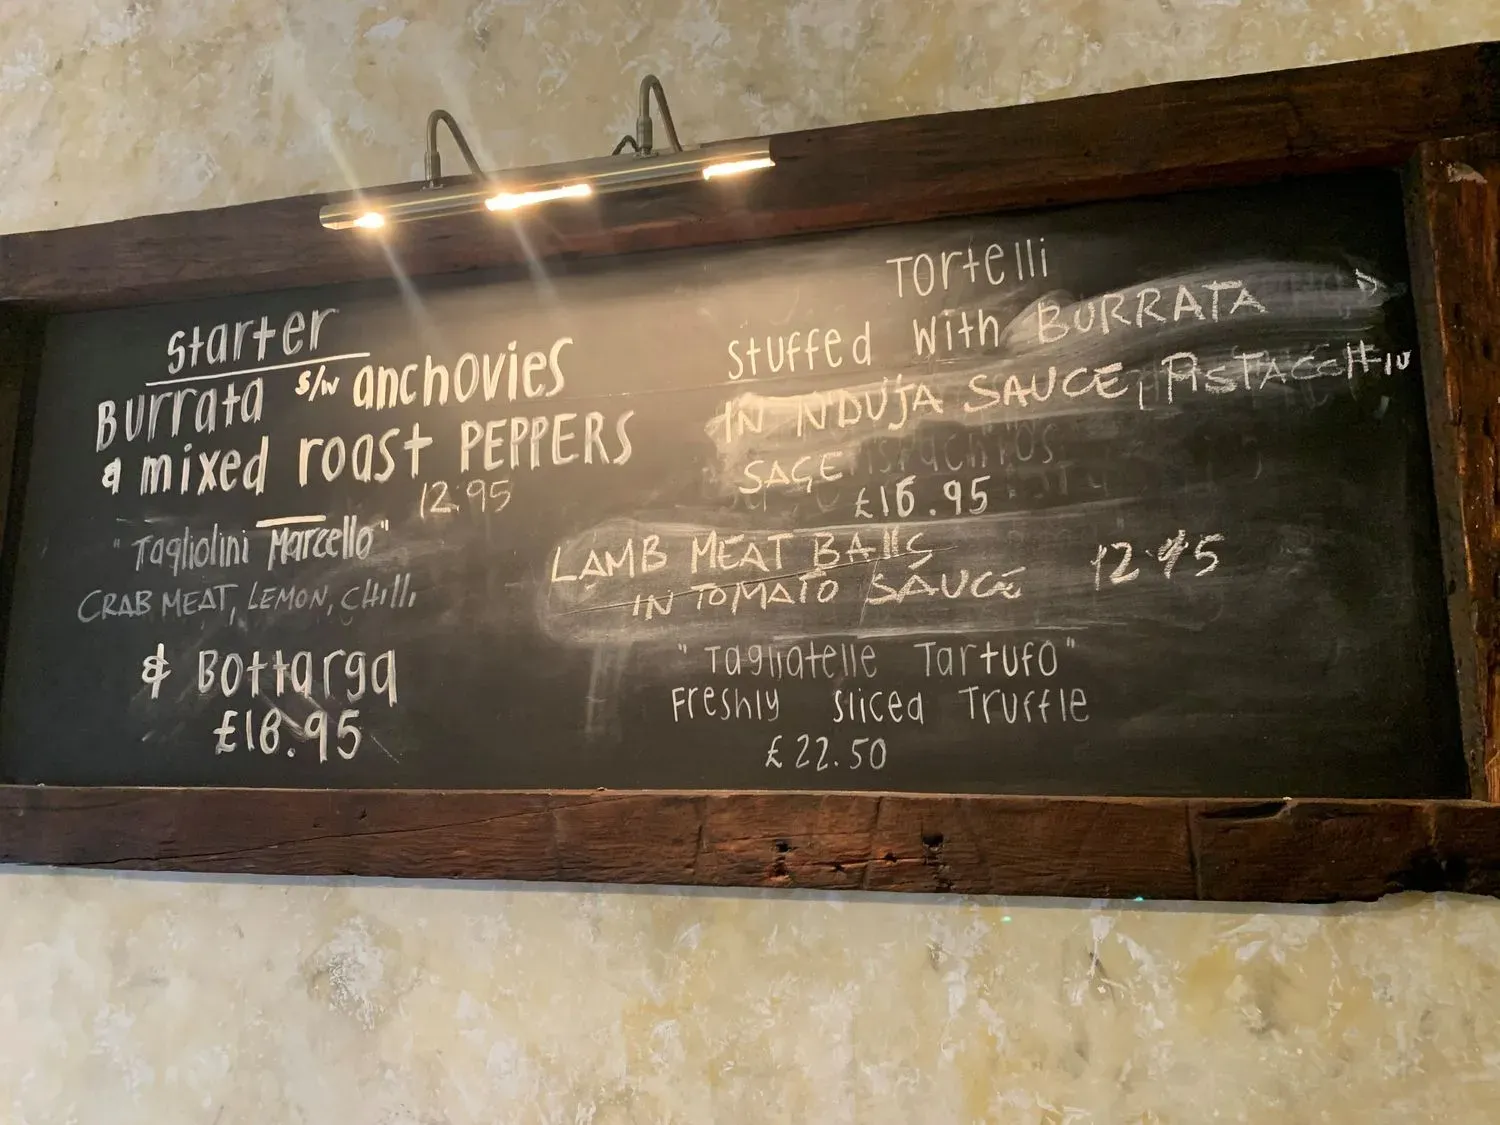 Starter
Burrata s/w anchovies
& mixed roast PEPPERS
12.95
"Tagliolini Marcello"
CRAB MEAT, LEMON, CHilli
& Bottarga
£18.95
Tortelli
Stuffed With BURRATA
IN N'DUJA SAUCE, PISTACCHIO
SAGE
£16.95
LAMB MEAT BAllS 12.95
IN TOMATO SAUCE
"Tagliatelle Tartufo"
Freshly Sliced Truffle
£22.50